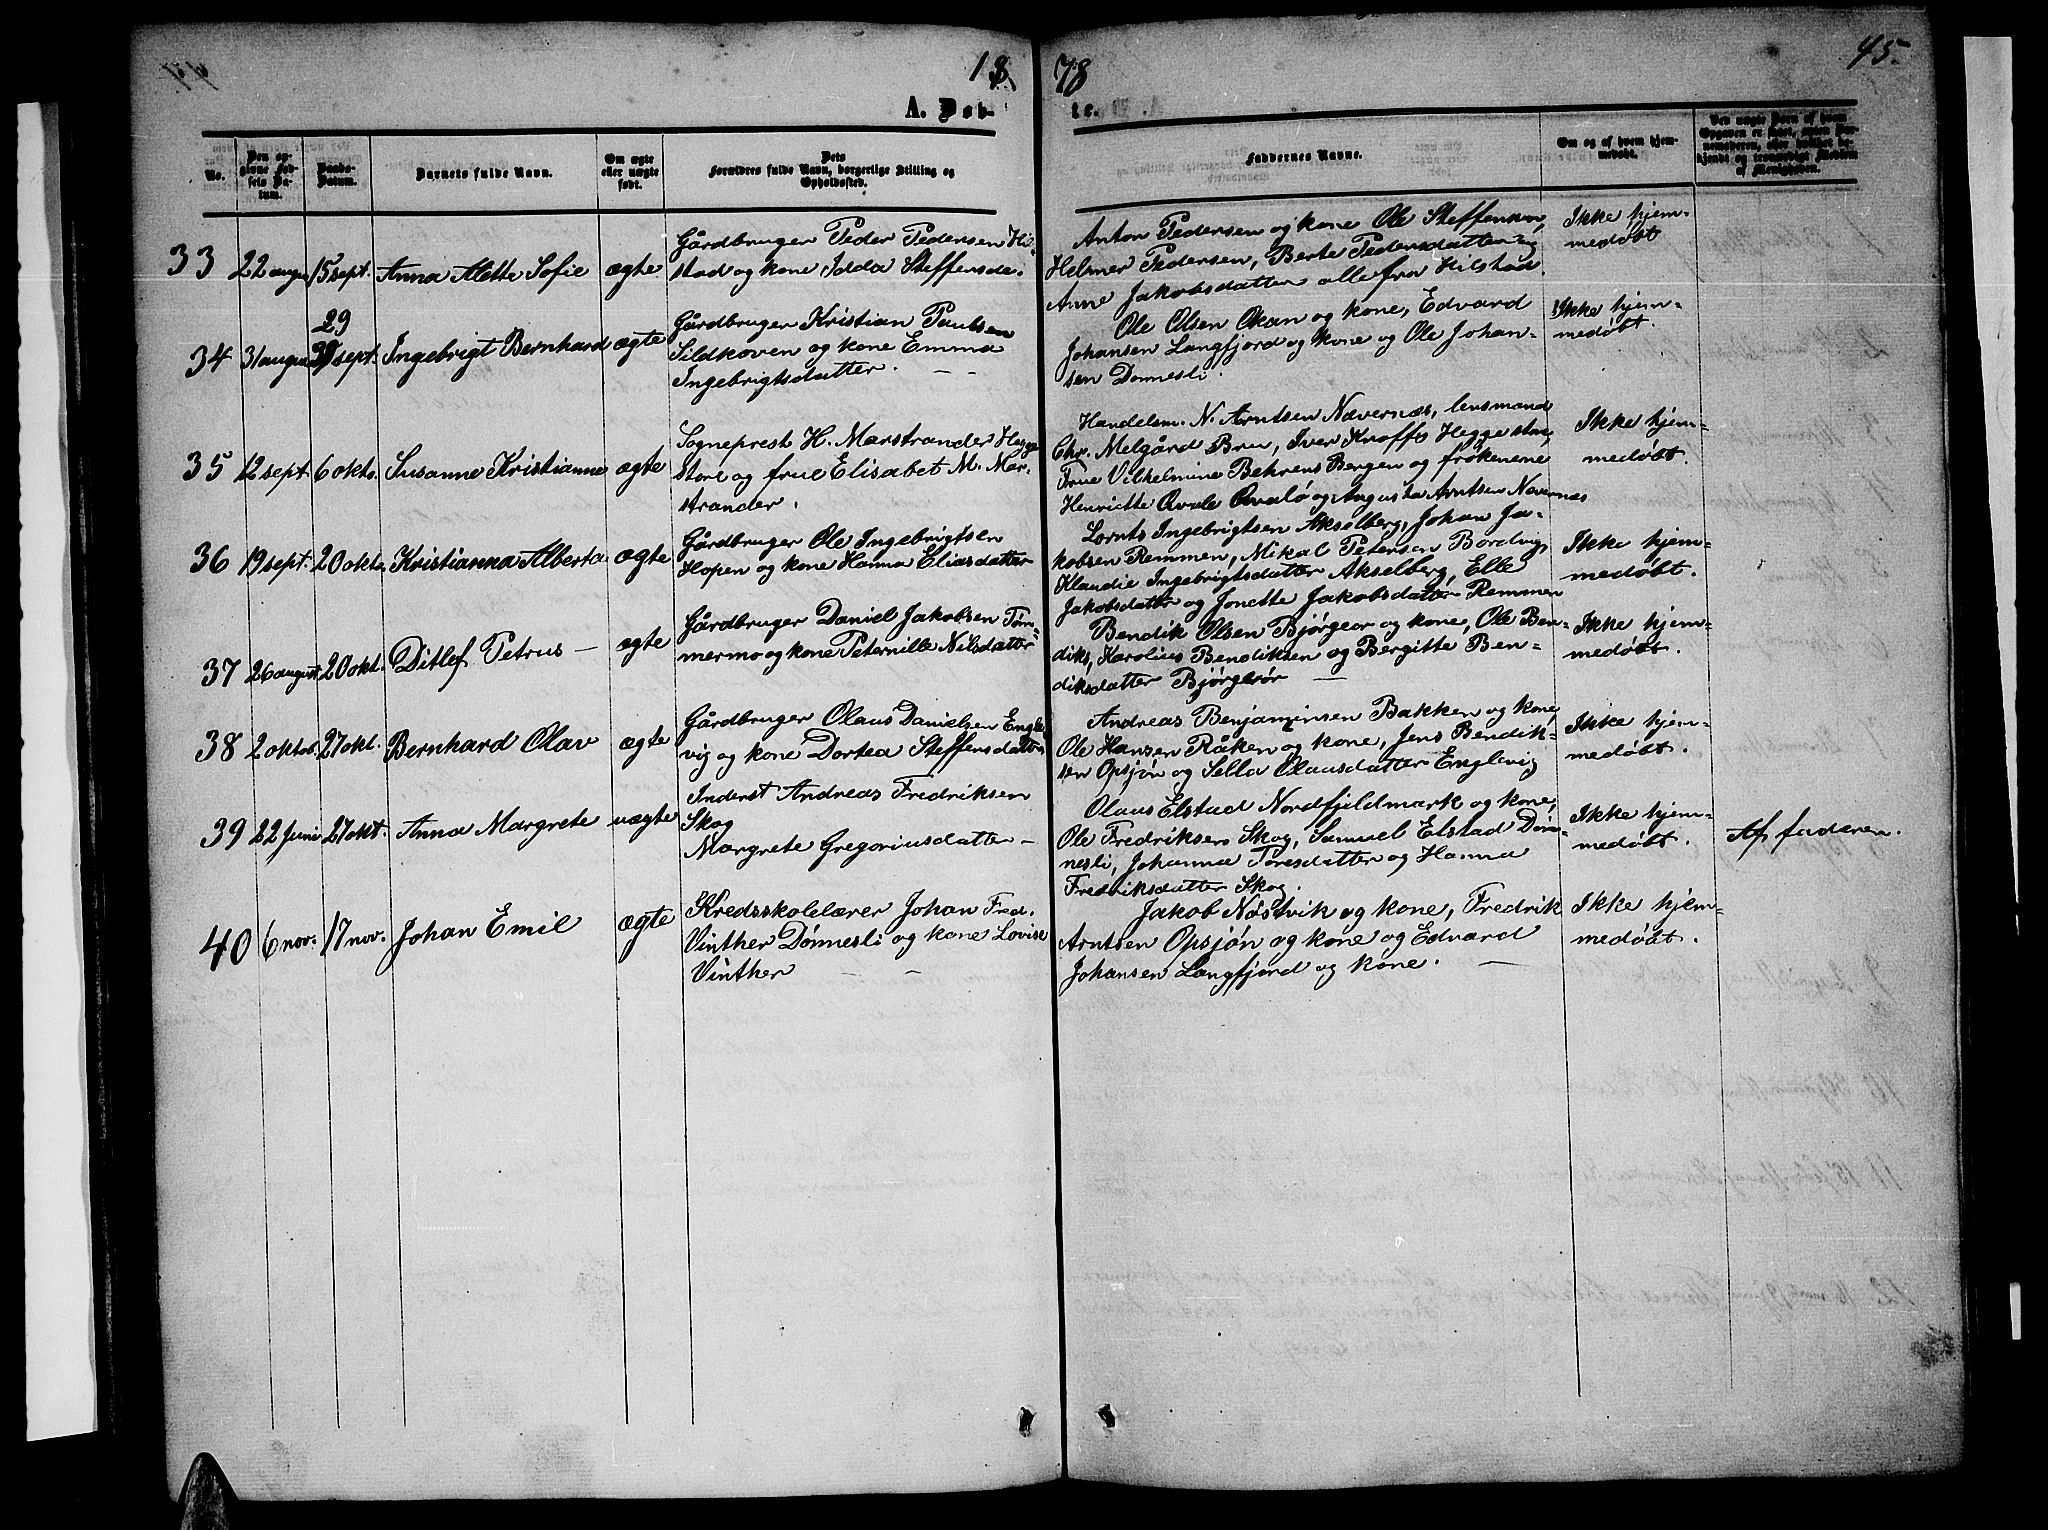 1878
45.
A. Døb-
te.
No.
Den op-
givne Fød-
sels Da-
tum.
Daabs-
Datum.
Barnets fulde Navn.
Om ægte
eller uægte
født.
Dets
Forældres fulde Navn, borgerlige Stilling og
Opholdssted.
Faddernes Navne.
Om og af hvem hjem-
medøbt.
Ved uægte Børn af hvem
Opgaven er sket, enten Bar-
nemoderen, eller hvilket be-
kjendt og troværdigt Medlem
af Menigheden.
33 22 august 15 sept. Anna Alette Sofie ægte
Gårdbruger Peder Pedersen Hil-
stad og kone Idda Steffensda.
Anton Pedersen og kone Ole Steffensen,
Helmer Pedersen, Berte Pedersdatter og
Anne Jakobsdatter alle fra Hilstad.
Ikke hjem-
medøbt
34 31 august 29 sept. Ingebrigt Bernhard ægte
Gårdbruger Kristian Paulsen
Sildhoven og kone Emma
Ingebrigtsdatter. — —
Ole Olsen Okan og kone, Edvard
Johansen Langfjord og kone og Ole Johan-
sen Dønnesli.
Ikke hjem-
medøbt.
35 12 sept. 6 okto. Susanne Kristianne ægte
Sogneprest H. Marstrander Hegge
stad og frue Elisabet M. Mar-
strander.
Handelsm. N. Arntsen Nævernæs, lensmand
Chr. Melgård Bru, Iver Knoff Heggestad,
Frue Vilhelmine Behrens Bergen og frøkenerne
Henriette Qvale Qvalø og Augusta Arntsen Nævernæs
Ikke hjem-
medøbt.
36 19 sept. 20 okto. Kristianna Alberta ægte
Gårdbruger Ole Ingebrigtsen
Hopen og kone Hanna Eliasdatter
Lornts Ingebrigtsen Akselberg, Johan Ja-
kobsen Remmen, Mikal Petersen Bordvig,
Klaudie Ingebrigtsdatter Akselberg, Elle
Jakobsdatter og Jonette Jakobsdatter Remmen
Ikke hjem-
medøbt.
37 26 august 20 okt. Ditlef Petrus — ægte
Gårdbruger Daniel Jakobsen Tøm-
mermo og kone Peternille Nilsdatter
Bendik Olsen Bjørgeør og kone, Ole Ben-
diks, Karolius Bendiksen og Bergitte Ben-
diksdatter Bjørgeør —
Ikke hjem-
medøbt.
38 2 oktob. 27 okt. Bernhard Olav ægte
Gårdbruger Olaus Danielsen Engle-
vig og kone Dortea Steffensdatter
Andreas Benjaminsen Bakken og kone,
Ole Hansen Råken og kone, Jens Bendik-
sen Opsjøn og Sella Olausdatter Englevig
Ikke hjem-
medøbt.
39 22 Juni 27 okt. Anna Margrete uægte
Inderst Andreas Fredriksen
Skog
Margrete Gregoriusdatter —
Olaus Elstad Nordfjeldmark og kone,
Ole Fredriksen Skog, Samuel Elstad Døn-
nesli, Johanna Toresdatter og Hanna
Fredriksdatter Skog.
Ikke hjem-
medøbt.
Af faderen.
40 6 nov. 17 nov. Johan Emil ægte
Kredsskolelærer Johan Fred.
Vinther Dønnesli og kone Lovise
Vinther — —
Jakob Nøstvik og kone, Fredrik
Arntsen Opsjøn og kone og Edvard
Johansen Langfjord og kone. —
Ikke hjem-
medøbt.